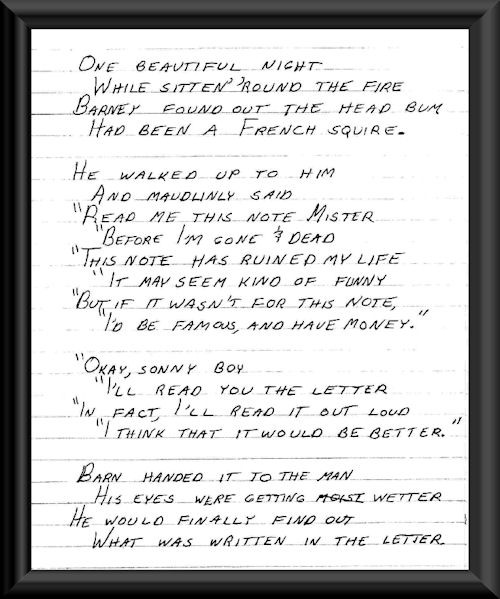 ONE BEAUTIFUL NIGHT
WHILE SITTEN' 'ROUND THE FIRE
BARNEY FOUND OUT THE HEAD BUM
HAD BEEN A FRENCH SQUIRE.
HE WALKED UP TO HIM
AND MAUDLINLY SAID
"READ ME THIS NOTE MISTER
"BEFORE I'M GONE & DEAD
"THIS NOTE HAS RUINED MY LIFE
"IT MAY SEEM KIND OF FUNNY
"BUT IF IT WASN'T FOR THIS NOTE,
"I'D BE FAMOUS, AND HAVE MONEY."
"OKAY, SONNY BOY
"I'LL READ YOU THE LETTER
"IN FACT, I'LL READ IT OUT LOUD
"I THINK THAT IT WOULD BE BETTER."
BARN HANDED IT TO THE MAN
HIS EYES WERE GETTING MOIST WETTER
HE WOULD FINALLY FIND OUT
WHAT WAS WRITTEN IN THE LETTER.